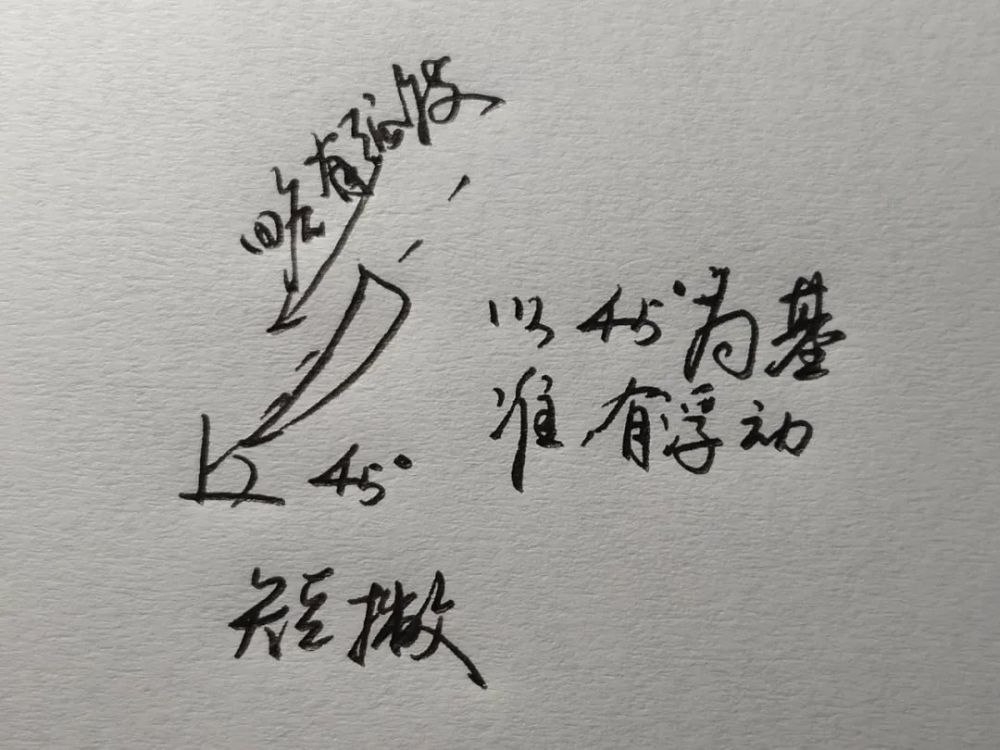 略有弧度
以45°为基
准,有浮动
45°
短撇